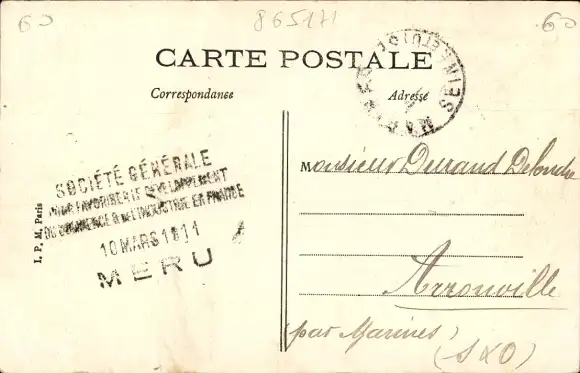 60
865171
60
CARTE POSTALE
Correspondance
Adresse
SEINE-ET-OISE
SOCIÉTÉ GÉNÉRALE
POUR FAVORISER LE DEVELOPPEMENT
DU COMMERCE & DE L'INDUSTRIE EN FRANCE
10 MARS 1911
MERU
I. P. M. Paris
Monsieur Durand Delondre
Arronville
(par Marines)
(S & O)